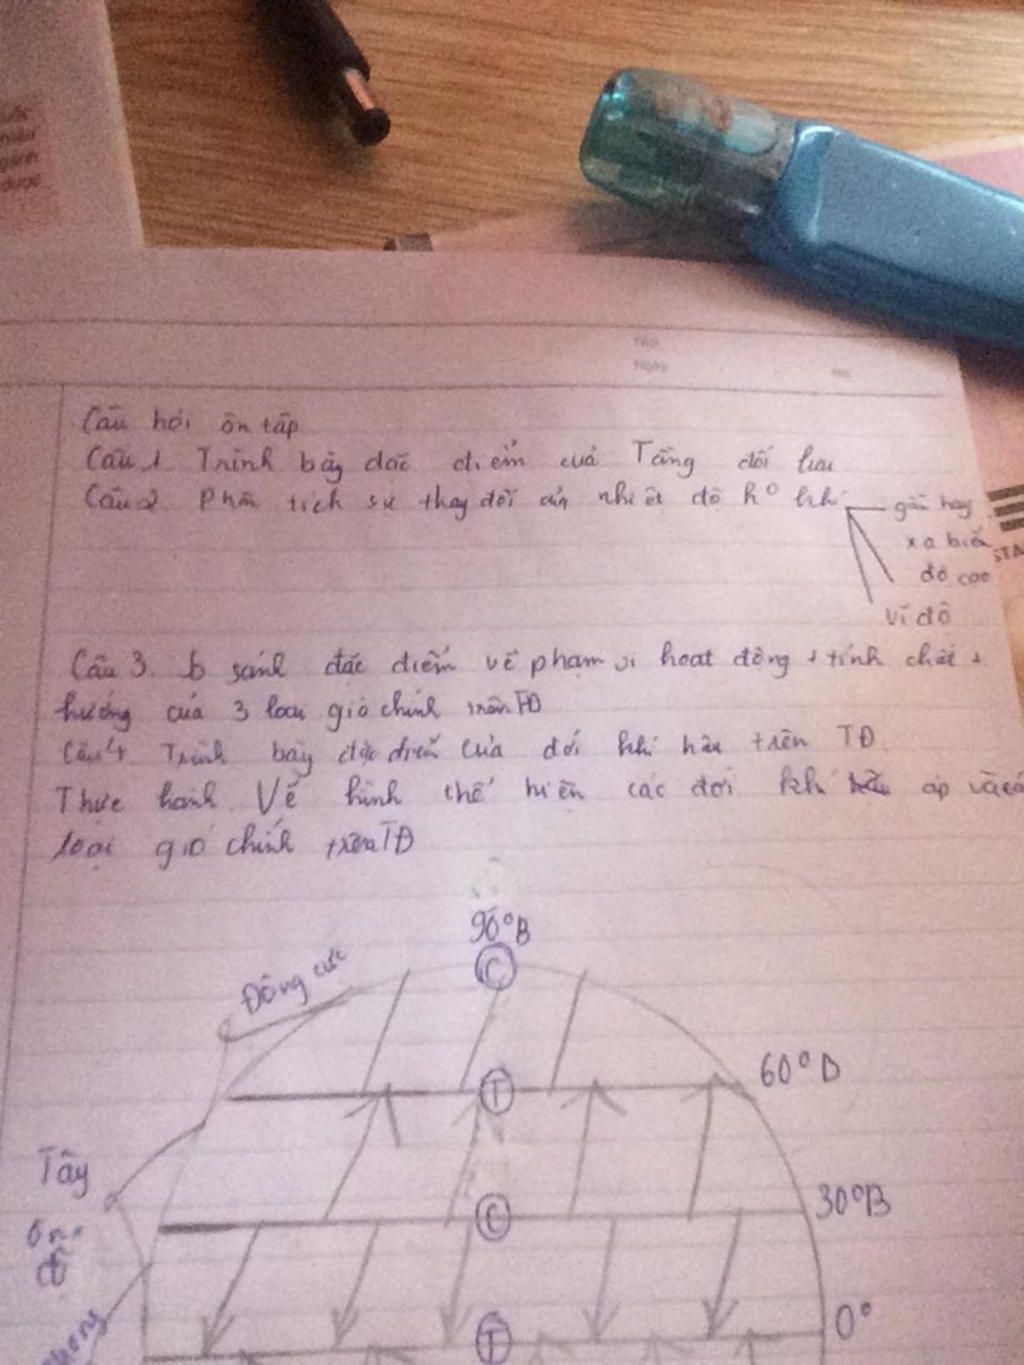 Câu hỏi ôn tập
Câu 1 Trình bày đặc điểm của Tầng đối lưu
Câu 2 Phân tích sự thay đổi của nhiệt độ ko khí
gần hay
xa biển
độ cao
Vĩ độ
Câu 3. So sánh đặc điểm về phạm vi hoạt động + tính chất +
hướng của 3 loại gió chính trên TĐ
Câu 4 Trình bày đặc điểm của đới khí hậu trên TĐ.
Thực hành Vẽ hình thể hiện các đới khí áp và các
loại gió chính trên TĐ
90°B
C
Đông cực
T
60°B
Tây
ôn
đới
C
30°B
T
0°
STA